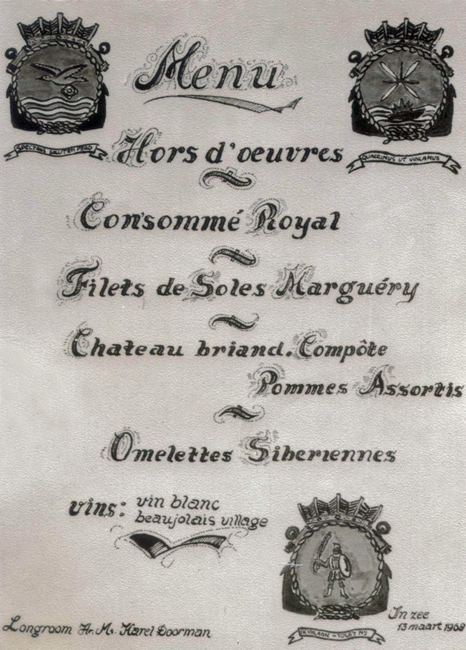 Menu
QUAERIMUS UT VINCAMUS
Hors d'oeuvres
Consommé Royal
Filets de Soles Marguéry
Chateau briand. Compôte
Pommes Assortis
Omelettes Siberiennes
vins: vin blanc
beaujolais village
Longroom Hr. Ms. Karel Doorman
In zee
13 maart 1968